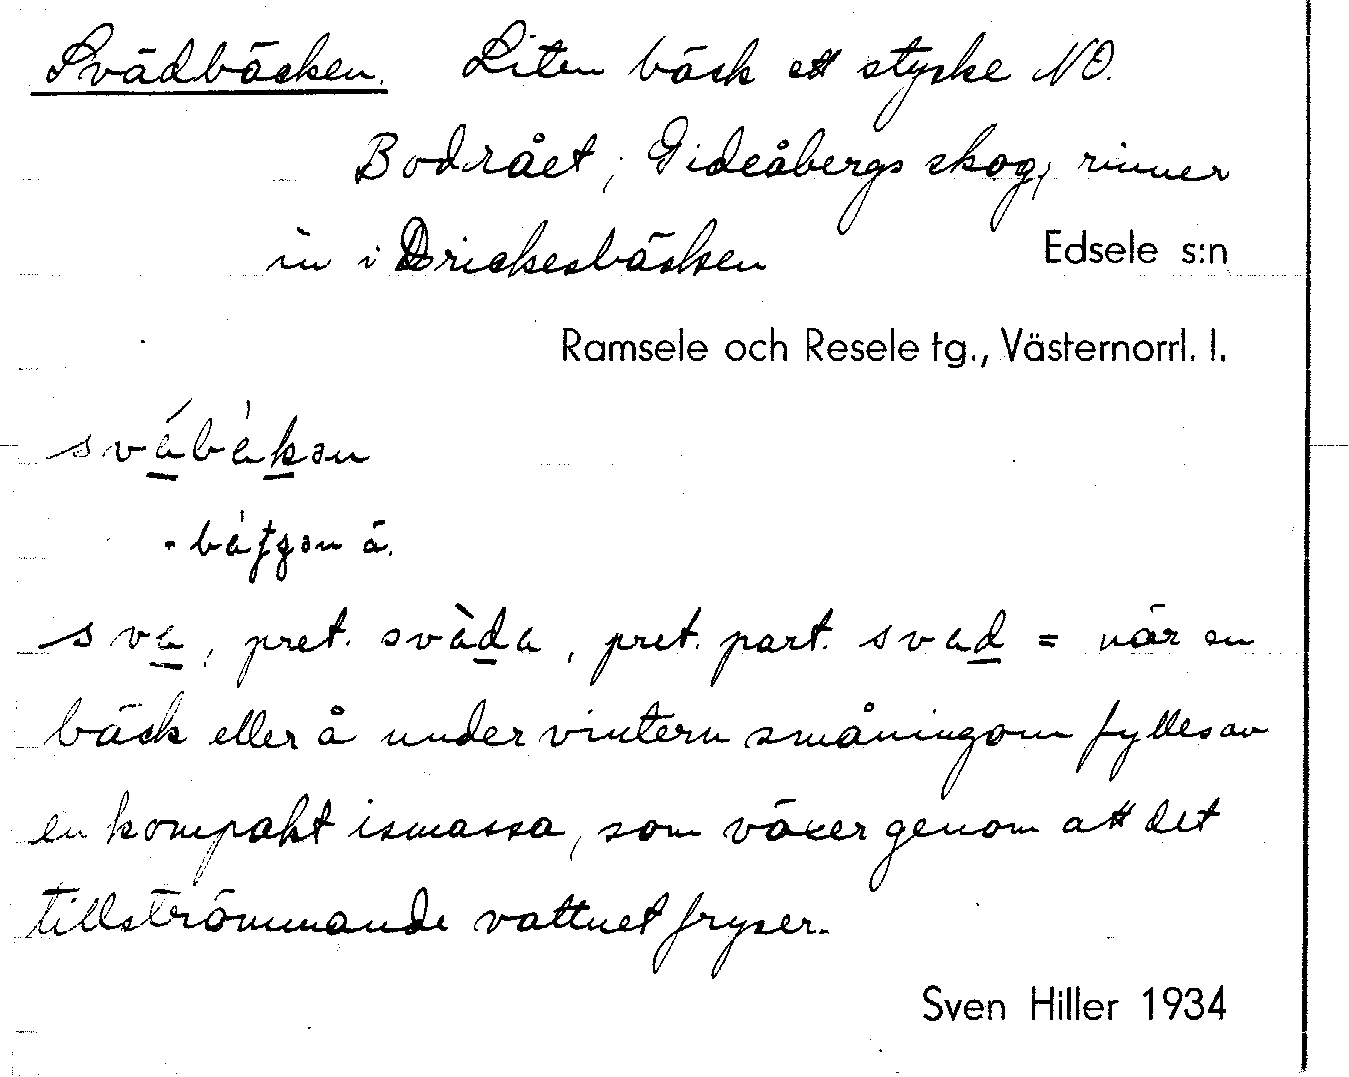 Svädbäcken. Liten bäck ett stycke NO.
Bodrået, Gideåbergs skog, rinner
in i Drickesbäcken Edsele s:n
Ramsele och Resele tg., Västernorrl. l.
- ä.
sva, pret. svàda, pret. part. svad = när en
bäck eller å under vintern småningom fylles av
en kompakt ismassa, som växer genom att det
tillströmmande vattnet fryser.
Sven Hiller 1934